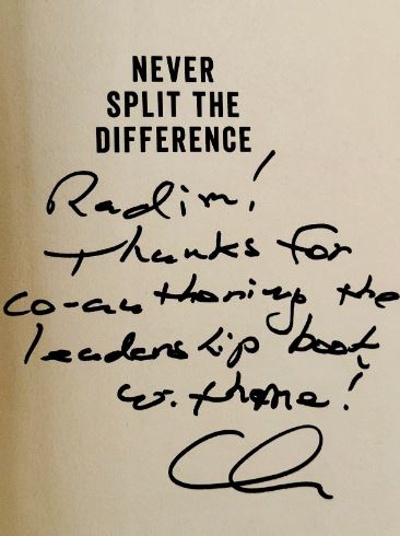 NEVER
SPLIT THE
DIFFERENCE
Radim!
Thanks for
co-authoring the
leadership book
w.